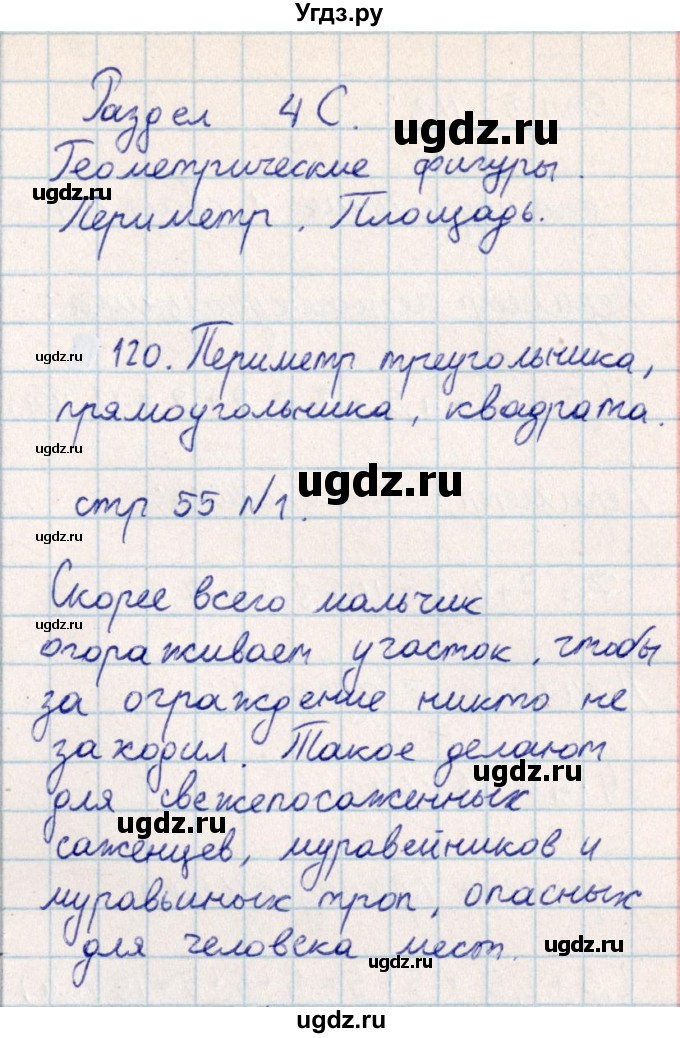 Угдз.ру
Раздел 4 С.
ugdz.ru
Геометрические фигуры.
ugdz.ru
Периметр. Площадь.
ugdz.ru
ugdz.ru
120. Периметр треугольника,
прямоугольника, квадрата.
ugdz.ru
ugdz.ru
стр 55 №1.
ugdz.ru
Скорее всего мальчик
ugdz.ru
огораживает участок, чтобы
за ограждение никто не
заходил. Такое делают
ugdz.ru
для свежепосаженных
ugdz.ru
саженцев, муравейников и
муравьиных троп, опасных
для человека мест.
ugdz.ru
ugdz.ru
ugdz.ru